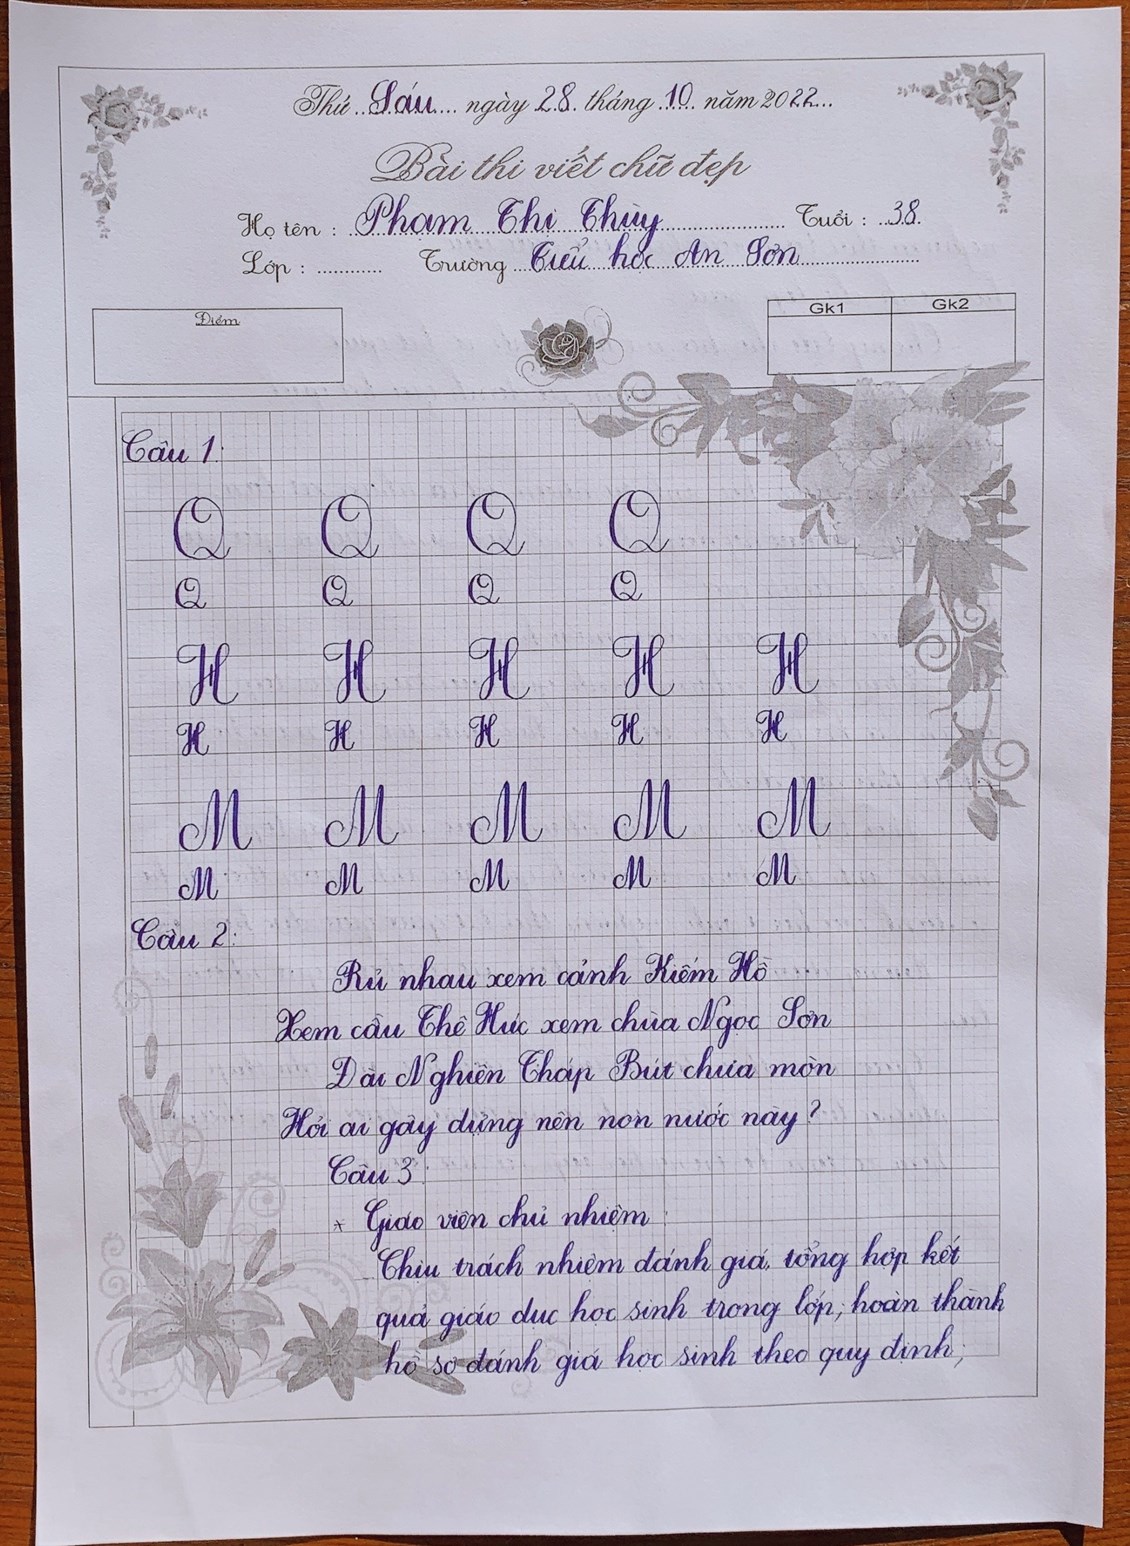 Thứ Sáu ngày 28 tháng 10 năm 2022
Bài thi viết chữ đẹp
Họ tên : Phạm Thị Thùy Tuổi : 38
Lớp : Trường Tiểu học An Sơn
Điểm
Gk1 Gk2
Câu 1:
Q Q Q Q
Q Q Q Q
H H H H H
H H H H H
M M M M M
M M M M M
Câu 2:
Rủ nhau xem cảnh Kiếm Hồ
Xem cầu Thê Húc xem chùa Ngọc Sơn
Đài Nghiên Tháp Bút chưa mòn
Hỏi ai gây dựng nên non nước này?
Câu 3:
* Giáo viên chủ nhiệm:
Chịu trách nhiệm đánh giá, tổng hợp kết
quả giáo dục học sinh trong lớp; hoàn thành
hồ sơ đánh giá học sinh theo quy định;